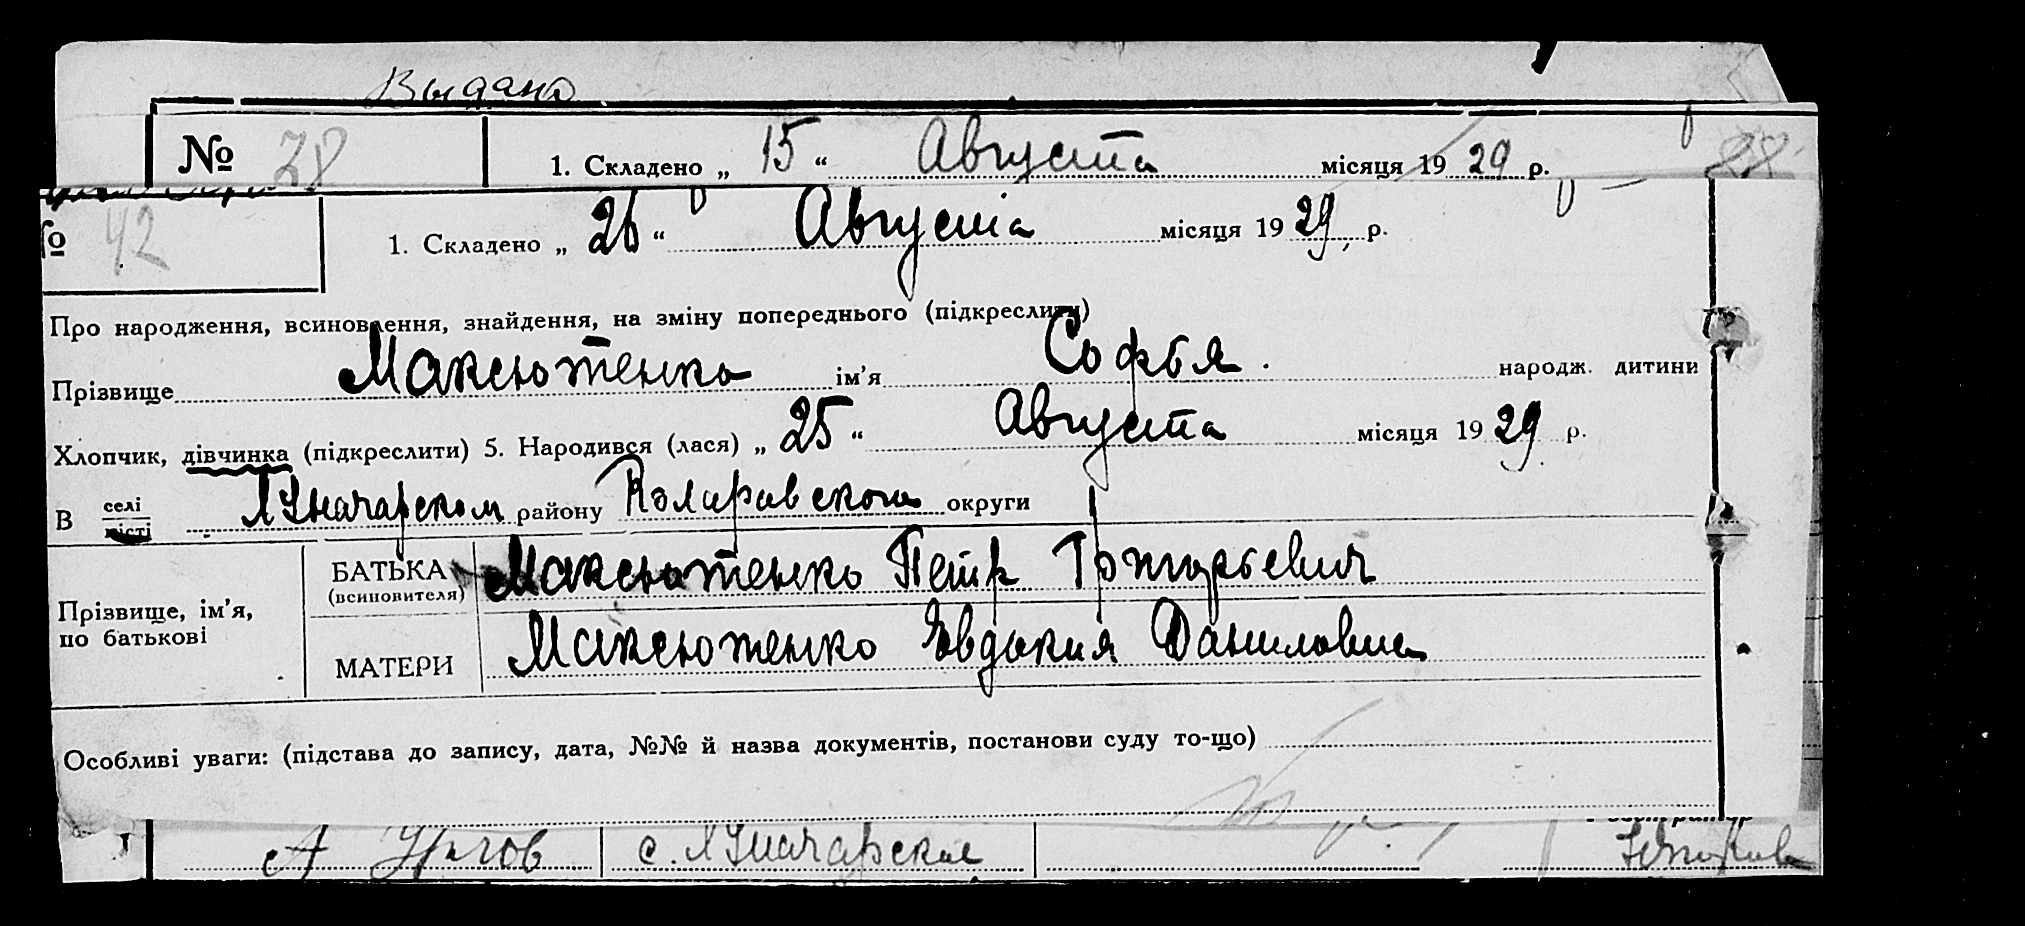 Выдано
№ 28 1. Складено „ 15 “ Августа місяця 19 29 р. 28
№ 42 1. Складено „ 26 “ Августа місяця 19 29 р.
Про народження, всиновлення, знайдення, на зміну попереднього (підкреслити)
Прізвище Максютенко ім’я Софья народж. дитини
Хлопчик, дівчинка (підкреслити) 5. Народився (лася) „ 25 “ Августа місяця 19 29 р.
В селі місті Луначарском району округи
Прізвище, ім’я, по батькові
БАТЬКА (всиновителя) Максютенко Петр Григорьевич
МАТЕРИ Максютенко Евдокия Даниловна
Особливі уваги: (підстава до запису, дата, №№ й назва документів, постанови суду то-що)
с. Луначарское